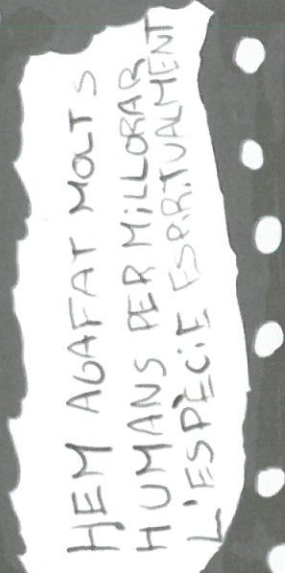 HEM AGAFAT MOLTS
HUMANS PER MiLLORAR
L'ESPÈCiE ESPiRiTUALMENT